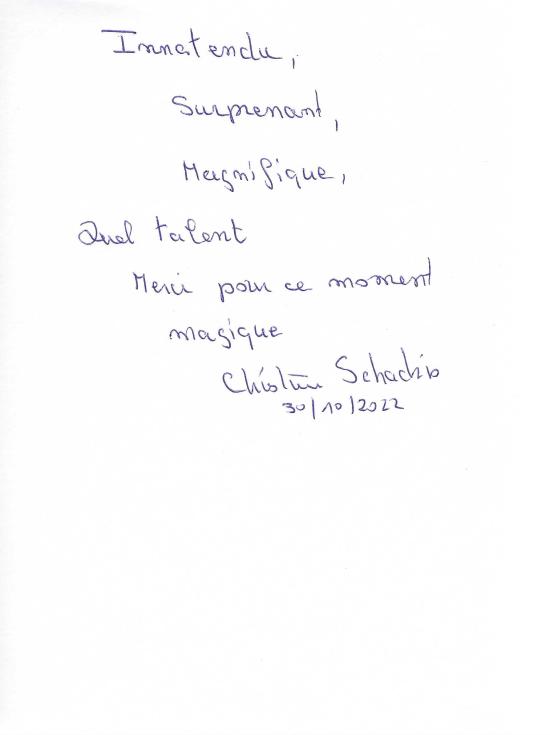 Innatendu,
Surprenant,
Magnifique,
Quel talent
Merci pour ce moment
magique
30/10/2022